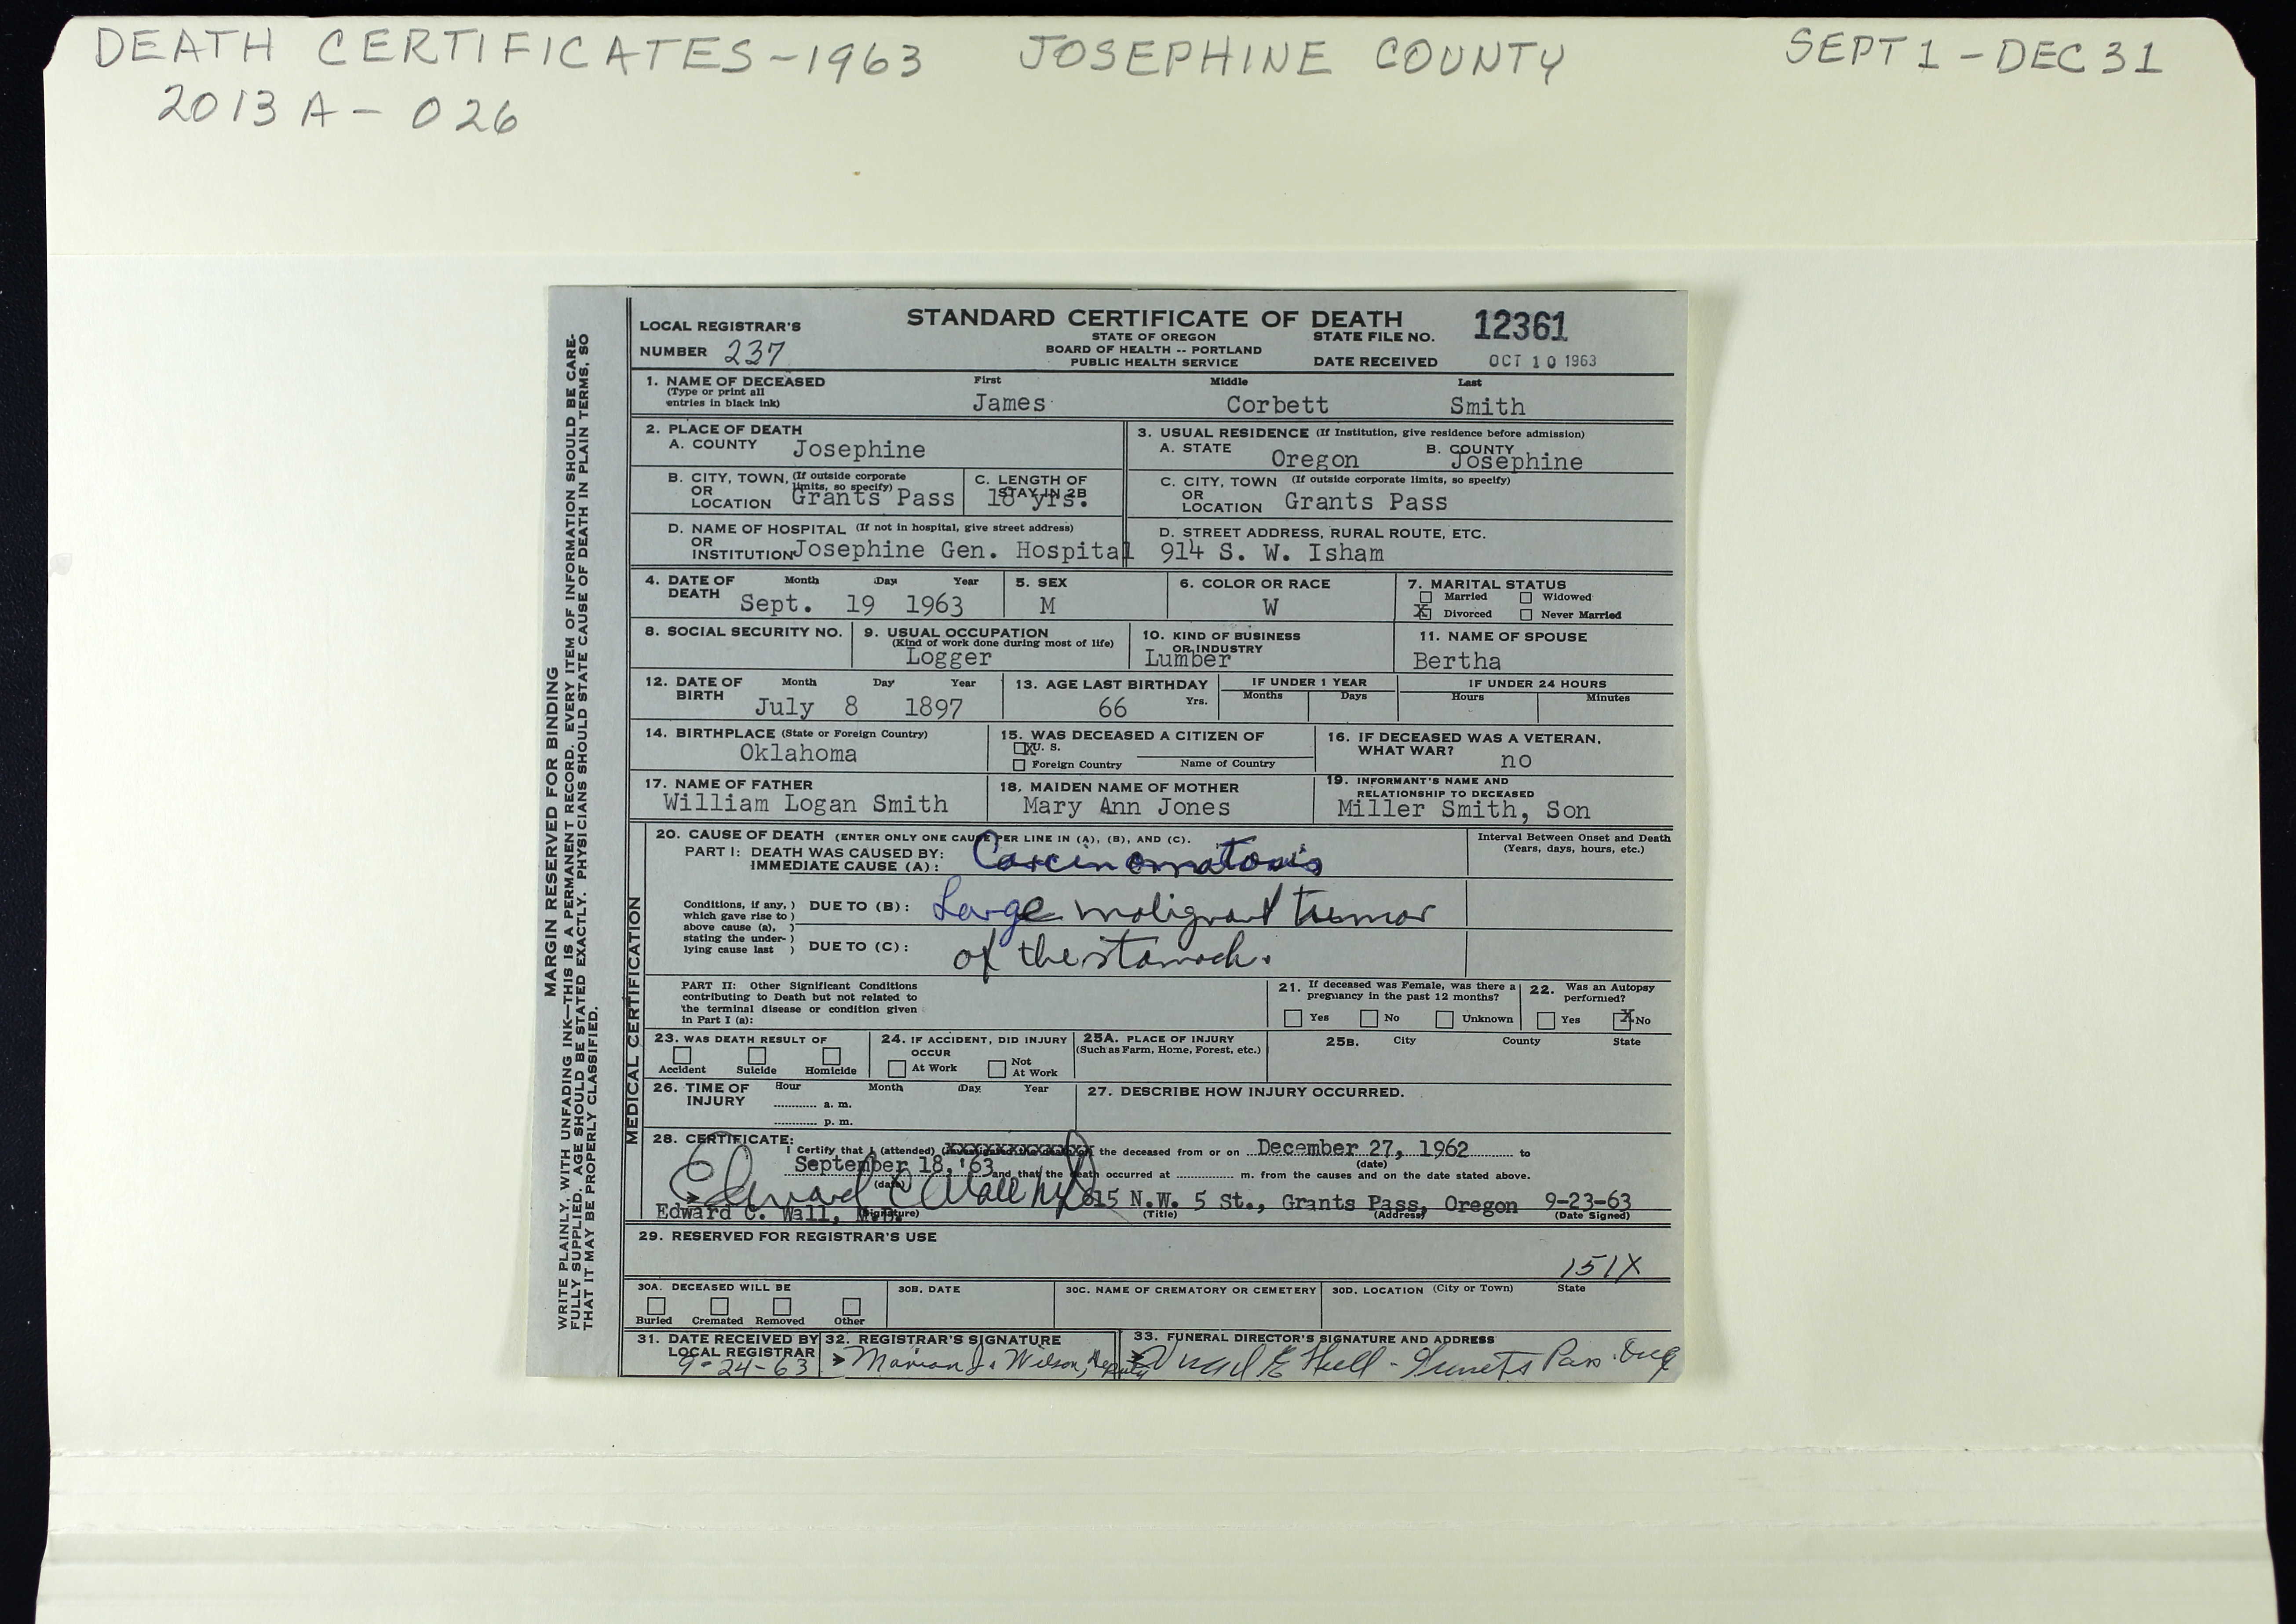 DEATH CERTIFICATES-1963 JOSEPHINE COUNTY SEPT 1 - DEC 31
2013 A - 026
MARGIN RESERVED FOR BINDING
WRITE PLAINLY, WITH UNFADING INK—THIS IS A PERMANENT RECORD. EVERY ITEM OF INFORMATION SHOULD BE CARE-
FULLY SUPPLIED. AGE SHOULD BE STATED EXACTLY. PHYSICIANS SHOULD STATE CAUSE OF DEATH IN PLAIN TERMS, SO
THAT IT MAY BE PROPERLY CLASSIFIED.
LOCAL REGISTRAR'S
NUMBER 237
STANDARD CERTIFICATE OF DEATH
STATE OF OREGON
BOARD OF HEALTH -- PORTLAND
PUBLIC HEALTH SERVICE
STATE FILE NO. 12361
DATE RECEIVED OCT 10 1963
1. NAME OF DECEASED First Middle Last
(Type or print all
entries in black ink) James Corbett Smith
2. PLACE OF DEATH
A. COUNTY Josephine
3. USUAL RESIDENCE (If Institution, give residence before admission)
A. STATE Oregon B. COUNTY Josephine
B. CITY, TOWN, (If outside corporate
OR limits, so specify)
LOCATION Grants Pass
C. LENGTH OF
STAY IN 2B
yrs.
C. CITY, TOWN (If outside corporate limits, so specify)
OR
LOCATION Grants Pass
D. NAME OF HOSPITAL (If not in hospital, give street address)
OR
INSTITUTION Josephine Gen. Hospital
D. STREET ADDRESS, RURAL ROUTE, ETC.
914 S. W. Isham
4. DATE OF Month Day Year
DEATH Sept. 19 1963
5. SEX
M
6. COLOR OR RACE
W
7. MARITAL STATUS
Married Widowed
X Divorced Never Married
8. SOCIAL SECURITY NO.
9. USUAL OCCUPATION
(Kind of work done during most of life)
Logger
10. KIND OF BUSINESS
OR INDUSTRY
Lumber
11. NAME OF SPOUSE
Bertha
12. DATE OF Month Day Year
BIRTH July 8 1897
13. AGE LAST BIRTHDAY
66 Yrs.
IF UNDER 1 YEAR
Months Days
IF UNDER 24 HOURS
Hours Minutes
14. BIRTHPLACE (State or Foreign Country)
Oklahoma
15. WAS DECEASED A CITIZEN OF
X U. S.
Foreign Country Name of Country
16. IF DECEASED WAS A VETERAN,
WHAT WAR?
no
17. NAME OF FATHER
William Logan Smith
18. MAIDEN NAME OF MOTHER
Mary Ann Jones
19. INFORMANT'S NAME AND
RELATIONSHIP TO DECEASED
Miller Smith, Son
MEDICAL CERTIFICATION
20. CAUSE OF DEATH (ENTER ONLY ONE CAUSE PER LINE IN (A), (B), AND (C).
PART I: DEATH WAS CAUSED BY:
IMMEDIATE CAUSE (A): Carcinomatosis
Interval Between Onset and Death
(Years, days, hours, etc.)
Conditions, if any, )
which gave rise to )
above cause (a), )
stating the under- )
lying cause last )
DUE TO (B): Large malignant tumor
DUE TO (C): of the stomach.
PART II: Other Significant Conditions
contributing to Death but not related to
the terminal disease or condition given
in Part I (a):
21. If deceased was Female, was there a
pregnancy in the past 12 months?
Yes No Unknown
22. Was an Autopsy
performed?
Yes X No
23. WAS DEATH RESULT OF
Accident Suicide Homicide
24. IF ACCIDENT, DID INJURY
OCCUR
At Work Not
At Work
25A. PLACE OF INJURY
(Such as Farm, Home, Forest, etc.)
25B. City County State
26. TIME OF Hour Month Day Year
INJURY ............ a. m.
............ p. m.
27. DESCRIBE HOW INJURY OCCURRED.
28. CERTIFICATE:
I Certify that I (attended) the deceased from or on December 27, 1962 to
(date)
September 18, '63 and that the death occurred at ................ m. from the causes and on the date stated above.
(date)
Edward C Wall MD
815 N.W. 5 St., Grants Pass, Oregon 9-23-63
Edward C. Wall, M.D. (Signature) (Title) (Address) (Date Signed)
29. RESERVED FOR REGISTRAR'S USE
151X
30A. DECEASED WILL BE
Buried Cremated Removed Other
30B. DATE
30C. NAME OF CREMATORY OR CEMETERY
30D. LOCATION (City or Town) State
31. DATE RECEIVED BY
LOCAL REGISTRAR
9-24-63
32. REGISTRAR'S SIGNATURE
Marion J. Wilson, Deputy
33. FUNERAL DIRECTOR'S SIGNATURE AND ADDRESS
E Hull - Grants Pass Oreg